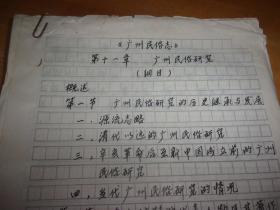 《广州民俗志》
第十一章 广州民俗研究
（纲目）
概述
第一节 广州民俗研究的历史继承与发展
一、源流志略
二、清代以迄的广州民俗研究
三、辛亥革命后至新中国成立前的广州
民俗研究
四、当代广州民俗研究的情况